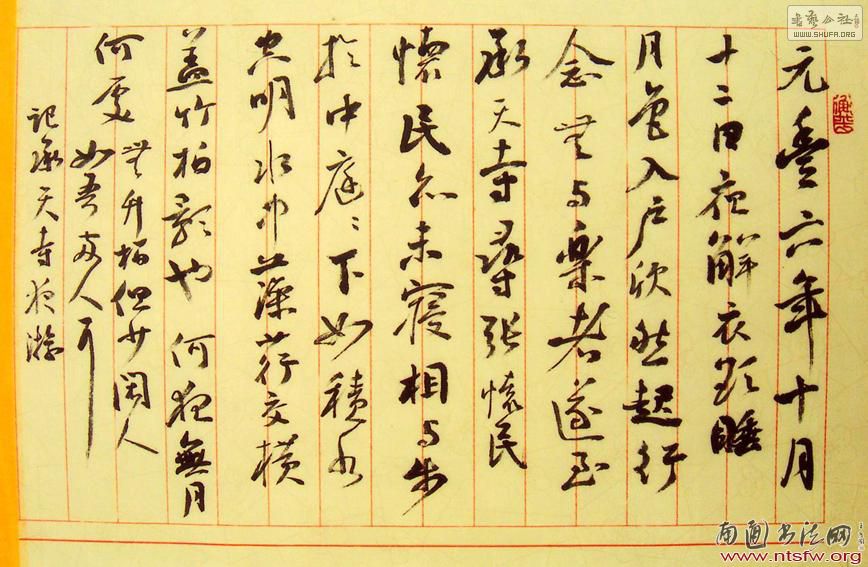 元豐六年十月
十二日夜解衣欲睡
月色入戶欣然起行
念無与樂者遂至
承天寺尋張懷民
懷民亦未寢相与步
於中庭〻下如積水
空明水中藻荇交橫
蓋竹柏影也何夜無月
何處無竹柏但少閑人
如吾兩人耳
記承天寺夜遊
书艺公社
WWW.SHUFA.ORG
南通书法网
www.ntsfw.org